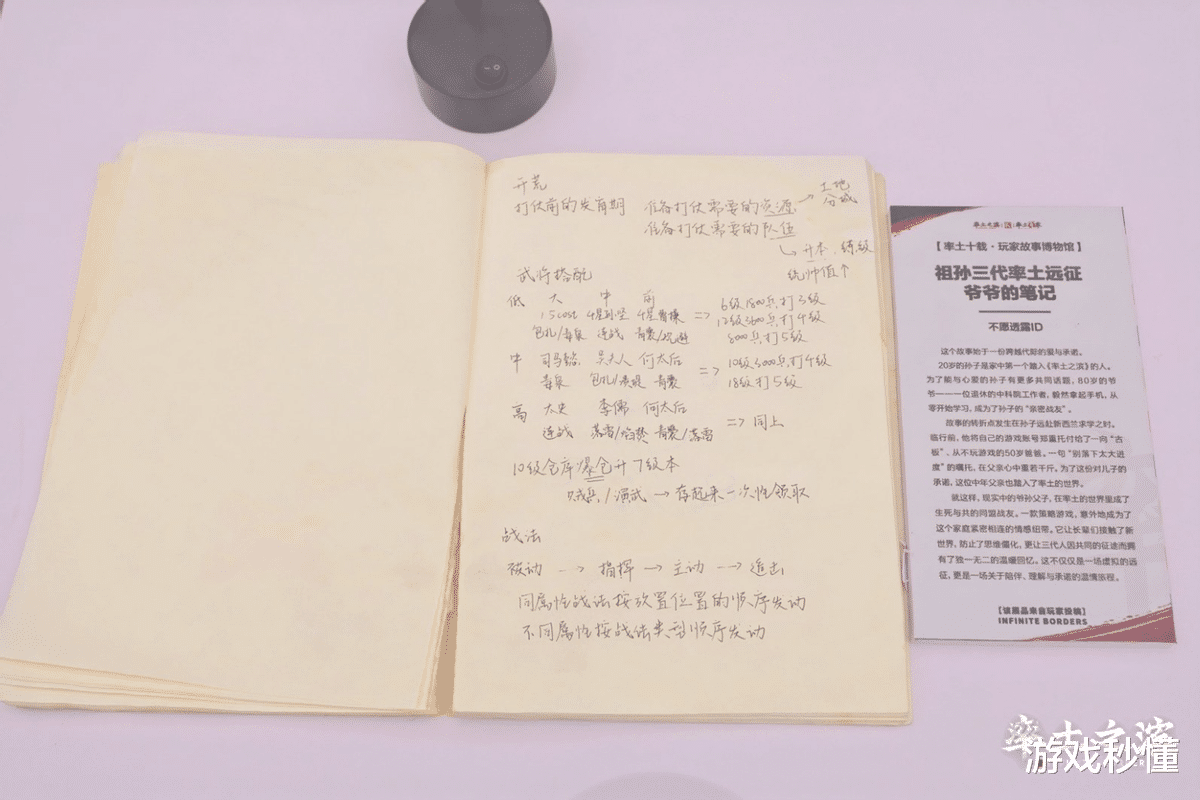 开荒
打仗前的发育期 准备打仗需要的资源 → 土地 分城
准备打仗需要的队伍
↳ 升本、练级
统帅值↑
武将搭配
低 大 中 前
1.5cost 4星孙坚 4星曹操 => 6级1800兵打3级
12级3600兵打4级
包扎/毒泉 连战 青囊/ 8000兵打5级
中 司马懿 吴夫人 何太后 => 10级3000兵打4级
毒泉 包扎/ 青囊 18级打5级
高 太史 李儒 何太后 => 同上
连战 落雷/焰焚 青囊/落雷
10级仓库爆仓升7级本
贼兵/演武 → 存起来一次性领取
战法
被动 --> 指挥 → 主动 --> 追击
同属性战法按放置位置的顺序发动
不同属性按战法类型顺序发动
【率土十载·玩家故事博物馆】
祖孙三代率土远征
爷爷的笔记
不愿透露ID
这个故事始于一份跨越代际的爱与承诺。
20岁的孙子是家中第一个踏入《率土之滨》的人。
为了能与心爱的孙子有更多共同话题，80岁的爷
爷——一位退休的中科院工作者，毅然拿起手机，从
零开始学习，成为了孙子的“亲密战友”。
故事的转折点发生在孙子远赴新西兰求学之时。
临行前，他将自己的游戏账号郑重托付给了一向“古
板”、从不玩游戏的50岁爸爸。一句“别落下太大进
度”的嘱托，在父亲心中重若千斤。为了这份对儿子的
承诺，这位中年父亲也踏入了率土的世界。
就这样，现实中的爷孙父子，在率土的世界里成了
生死与共的同盟战友。一款策略游戏，意外地成为了
这个家庭紧密相连的情感纽带。它让长辈们接触了新
世界，防止了思维僵化，更让三代人因共同的征途而拥
有了独一无二的温暖回忆。这不仅仅是一场虚拟的远
征，更是一场关于陪伴、理解与承诺的温情旅程。
【该展品来自玩家投稿】
INFINITE BORDERS
率土之滨
游戏秒懂